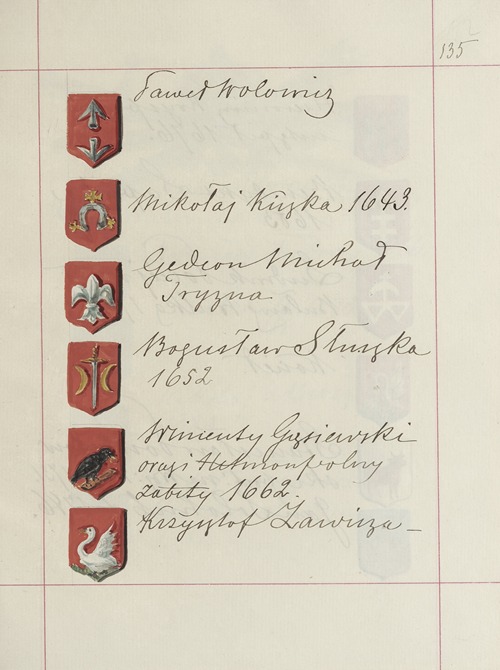 135
Paweł Wołowicz
Mikołaj Kiszka 1643.
Gedeon Michał
Tryzna
Bogusław Słuszka
1652
Wincenty Gąsiewski
oraz i Hetman polny
zabity 1662.
Krzysztof Zawisza –